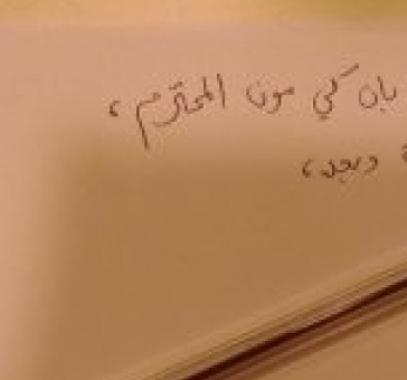 بان كي مون المحترم،
وبعد،